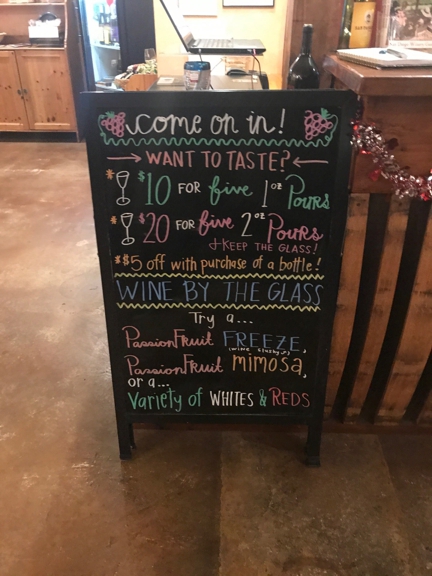 come on in!
WANT TO TASTE?
* $10 FOR five 1oz Pours
* $20 FOR five 2oz Pours
+KEEP THE GLASS!
*$5 off with purchase of a bottle!
WINE BY THE GLASS
Try a...
PassionFruit FREEZE,
(wine slushy!)
PassionFruit mimosa,
or a...
Variety of WHITES & REDS